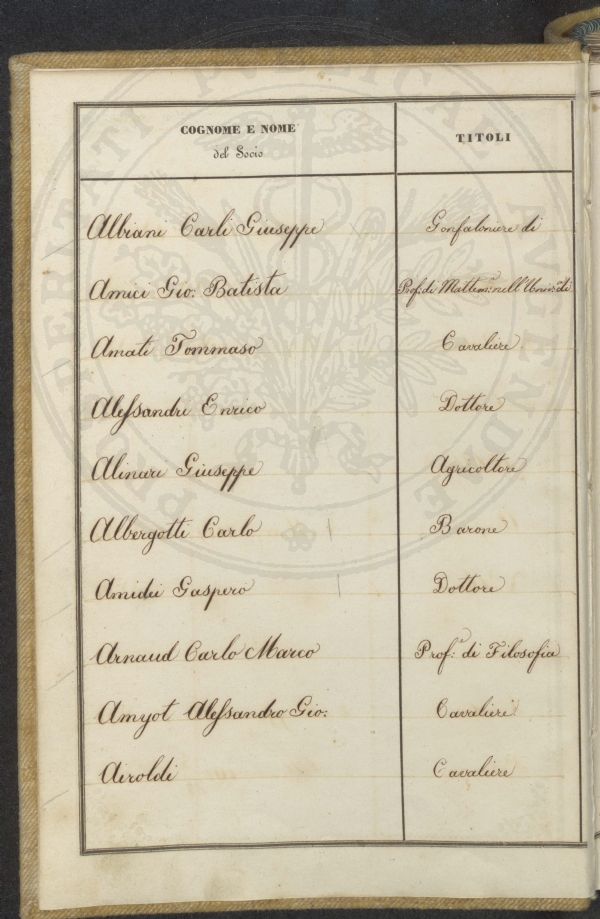 COGNOME E NOME TITOLI
del Socio
Albiani Carli Giuseppe Gonfaloniere di
Amici Gio: Batista Prof.e di Mattem.e nell'Univ.tà di
Amati Tommaso Cavaliere
Alessandri Enrico Dottore
Alinari Giuseppe Agricoltore
Albergotti Carlo Barone
Amidei Gaspero Dottore
Arnaud Carlo Marco Prof.e di Filosofia
Amyot Alessandro Gio: Cavaliere
Airoldi Cavaliere
PROSPERITATI PUBLICAE AUGENDAE